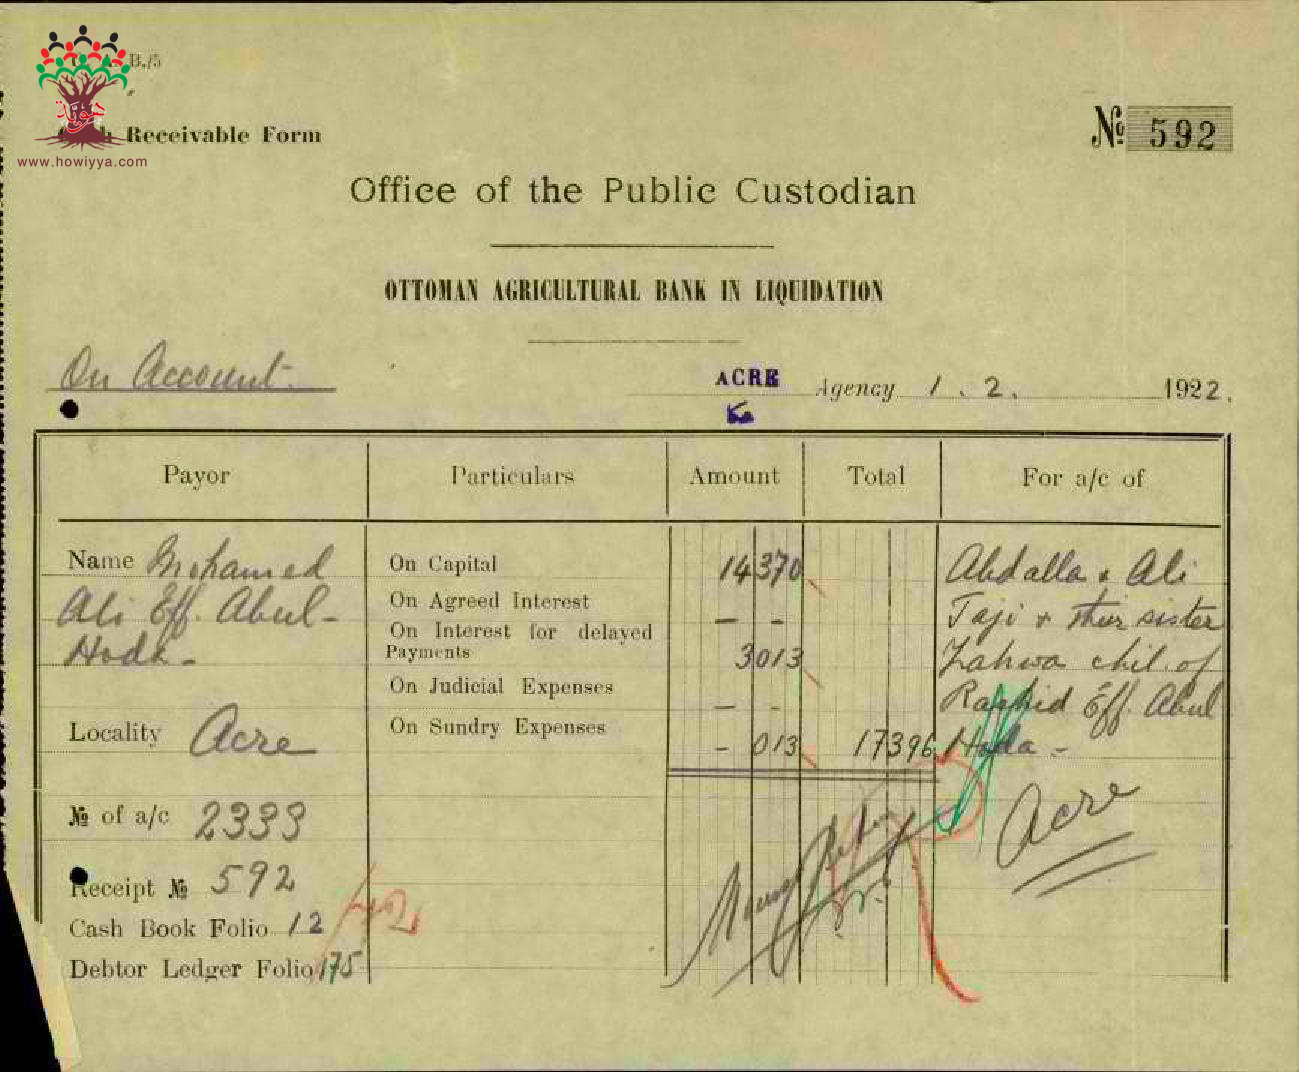 B./5
Receivable Form
هوية
www.howiyya.com
№ 592
Office of the Public Custodian
OTTOMAN AGRICULTURAL BANK IN LIQUIDATION
On Account.
ACRE Agency 1.2. 1922.
Payor Particulars Amount Total For a/c of
Name Mohamed On Capital 14 370 Abdalla & Ali
Ali Eff. Abul- On Agreed Interest — - Taji & their sister
Hoda - On Interest for delayed Payments 3 013 Zahwa chil. of
On Judicial Expenses — - Rashid Eff. Abul
Locality Acre On Sundry Expenses - 013 17396 Hoda -
№ of a/c 2333 Acre
Receipt № 592
Cash Book Folio 12
Debtor Ledger Folio 175